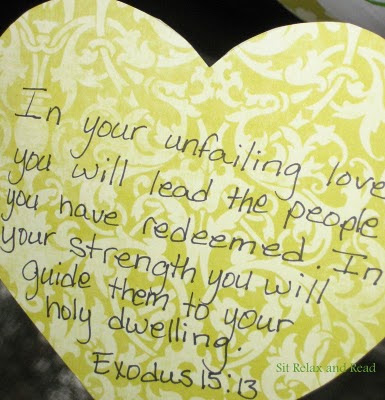 In your unfailing love
you will lead the people
you have redeemed. In
your strength you will
guide them to your
holy dwelling.
Exodus 15:13
Sit Relax and Read